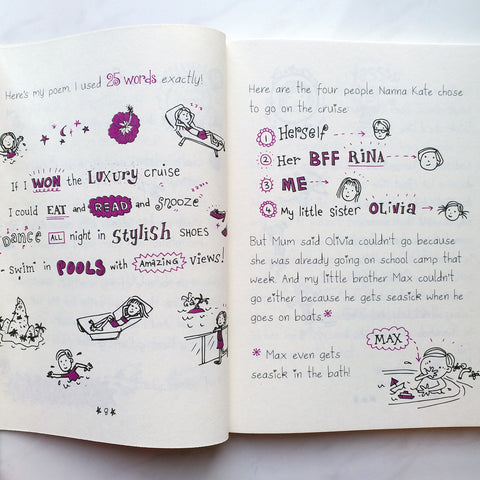 Here's my poem. I used 25 words exactly!
If I WON the LUXURY cruise
I could EAT and READ and snooze
Dance ALL night in stylish SHOES
- swim in POOLS with AMAZING views!
8
Here are the four people Nanna Kate chose
to go on the cruise
1 Herself
2 Her BFF RINA
3 ME
4 My little sister OLIVIA
But Mum said Olivia couldn't go because
she was already going on school camp that
week. And my little brother Max couldn't
go either because he gets seasick when he
goes on boats.*
MAX
* Max even gets
seasick in the bath!